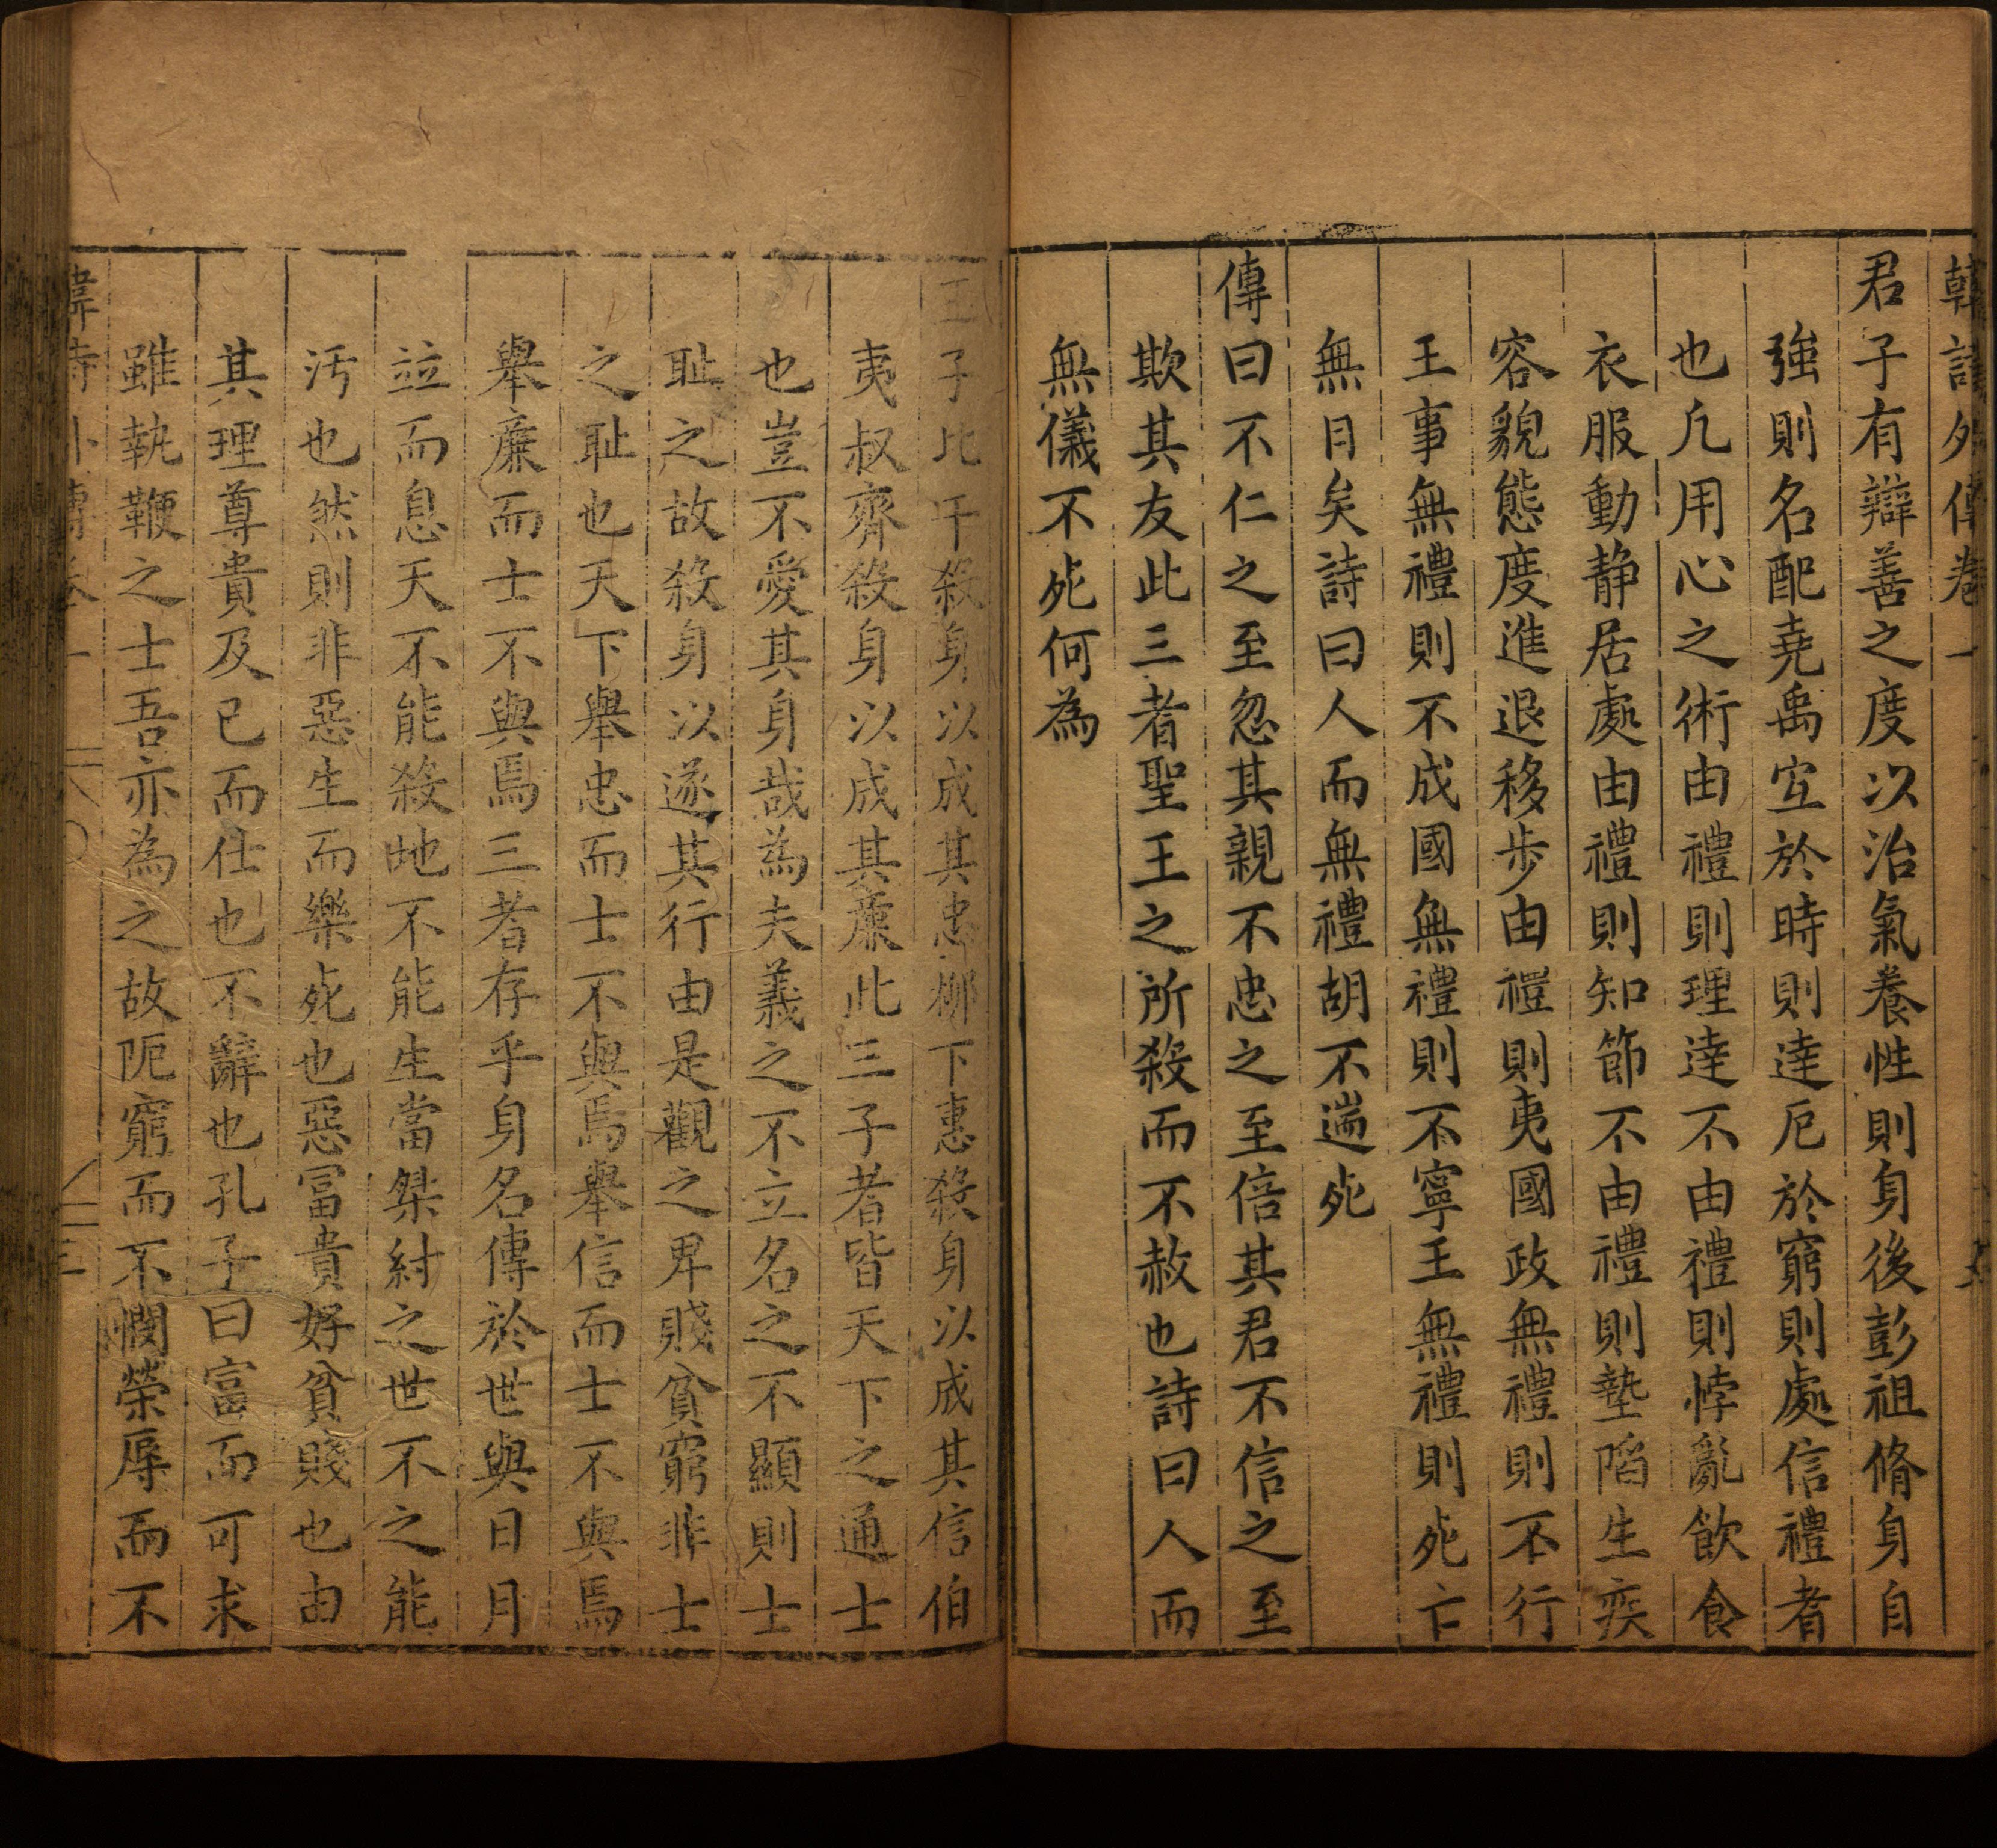 韓詩外傳卷一
君子有辯善之度以治氣養性則身後彭祖脩身自
強則名配堯禹宜於時則達厄於窮則處信禮者
也凡用心之術由禮則理達不由禮則悖亂飲食
衣服動静居處由禮則知節不由禮則墊陷生疾
容貌態度進退移步由禮則夷國政無禮則不行
王事無禮則不成國無禮則不寧王無禮則死亡
無日矣詩曰人而無禮胡不遄死
傳曰不仁之至忽其親不忠之至倍其君不信之至
欺其友此三者聖王之所殺而不赦也詩曰人而
無儀不死何為
王子比干殺身以成其忠柳下惠殺身以成其信伯
夷叔齊殺身以成其廉此三子者皆天下之通士
也豈不愛其身哉為夫義之不立名之不顯則士
耻之故殺身以遂其行由是觀之卑賤貧窮非士
之耻也天下舉忠而士不與焉舉信而士不與焉
舉廉而士不與焉三者存乎身名傳於世與日月
竝而息天不能殺地不能生當桀紂之世不之能
汚也然則非惡生而樂死也惡冨貴好貧賤也由
其理尊貴及已而仕也不辭也孔子曰富而可求
雖執鞭之士吾亦為之故阨窮而不憫榮辱而不
韓詩外傳卷一